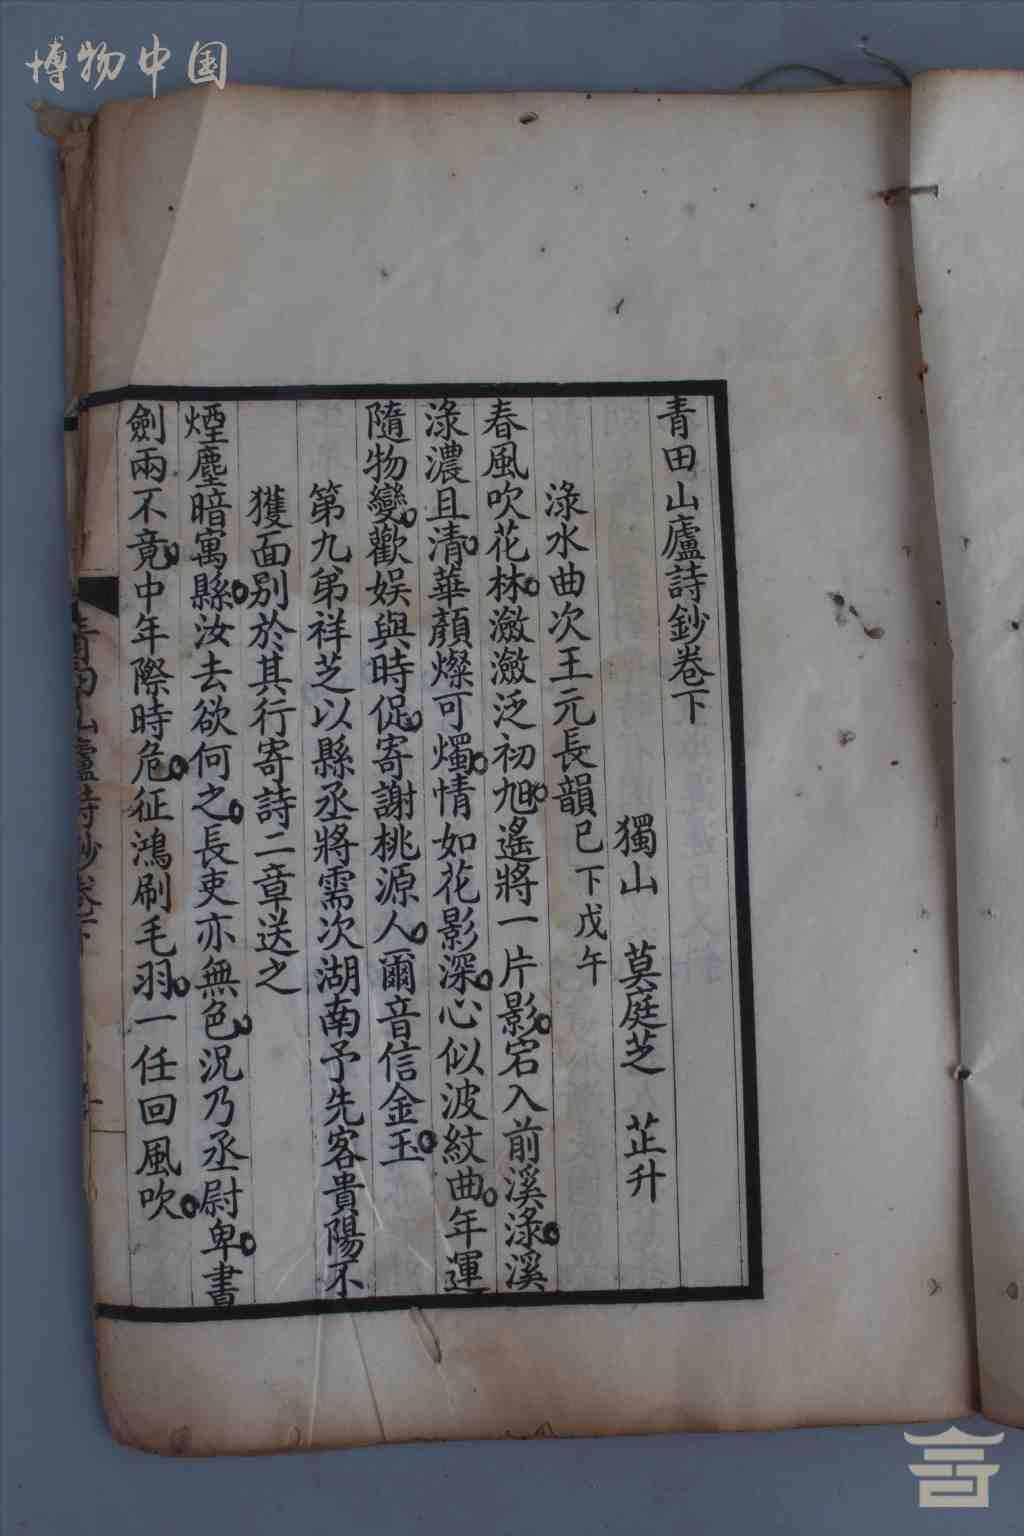 博物中国
青田山廬詩鈔卷下
獨山 莫庭芝 芷升
淥水曲次王元長韻已下戊午
春風吹花林瀲瀲泛初旭遙將一片影宕入前溪淥溪
淥濃且清華顏燦可燭情如花影深心似波紋曲年運
隨物變歡娱與時促寄謝桃源人爾音信金玉
第九弟祥芝以縣丞將需次湖南予先客貴陽不
獲面别於其行寄詩二章送之
煙塵暗寓縣汝去欲何之長吏亦無色況乃丞尉卑書
劍兩不竟中年際時危征鴻刷毛羽一任回風吹
青田山廬詩鈔卷下